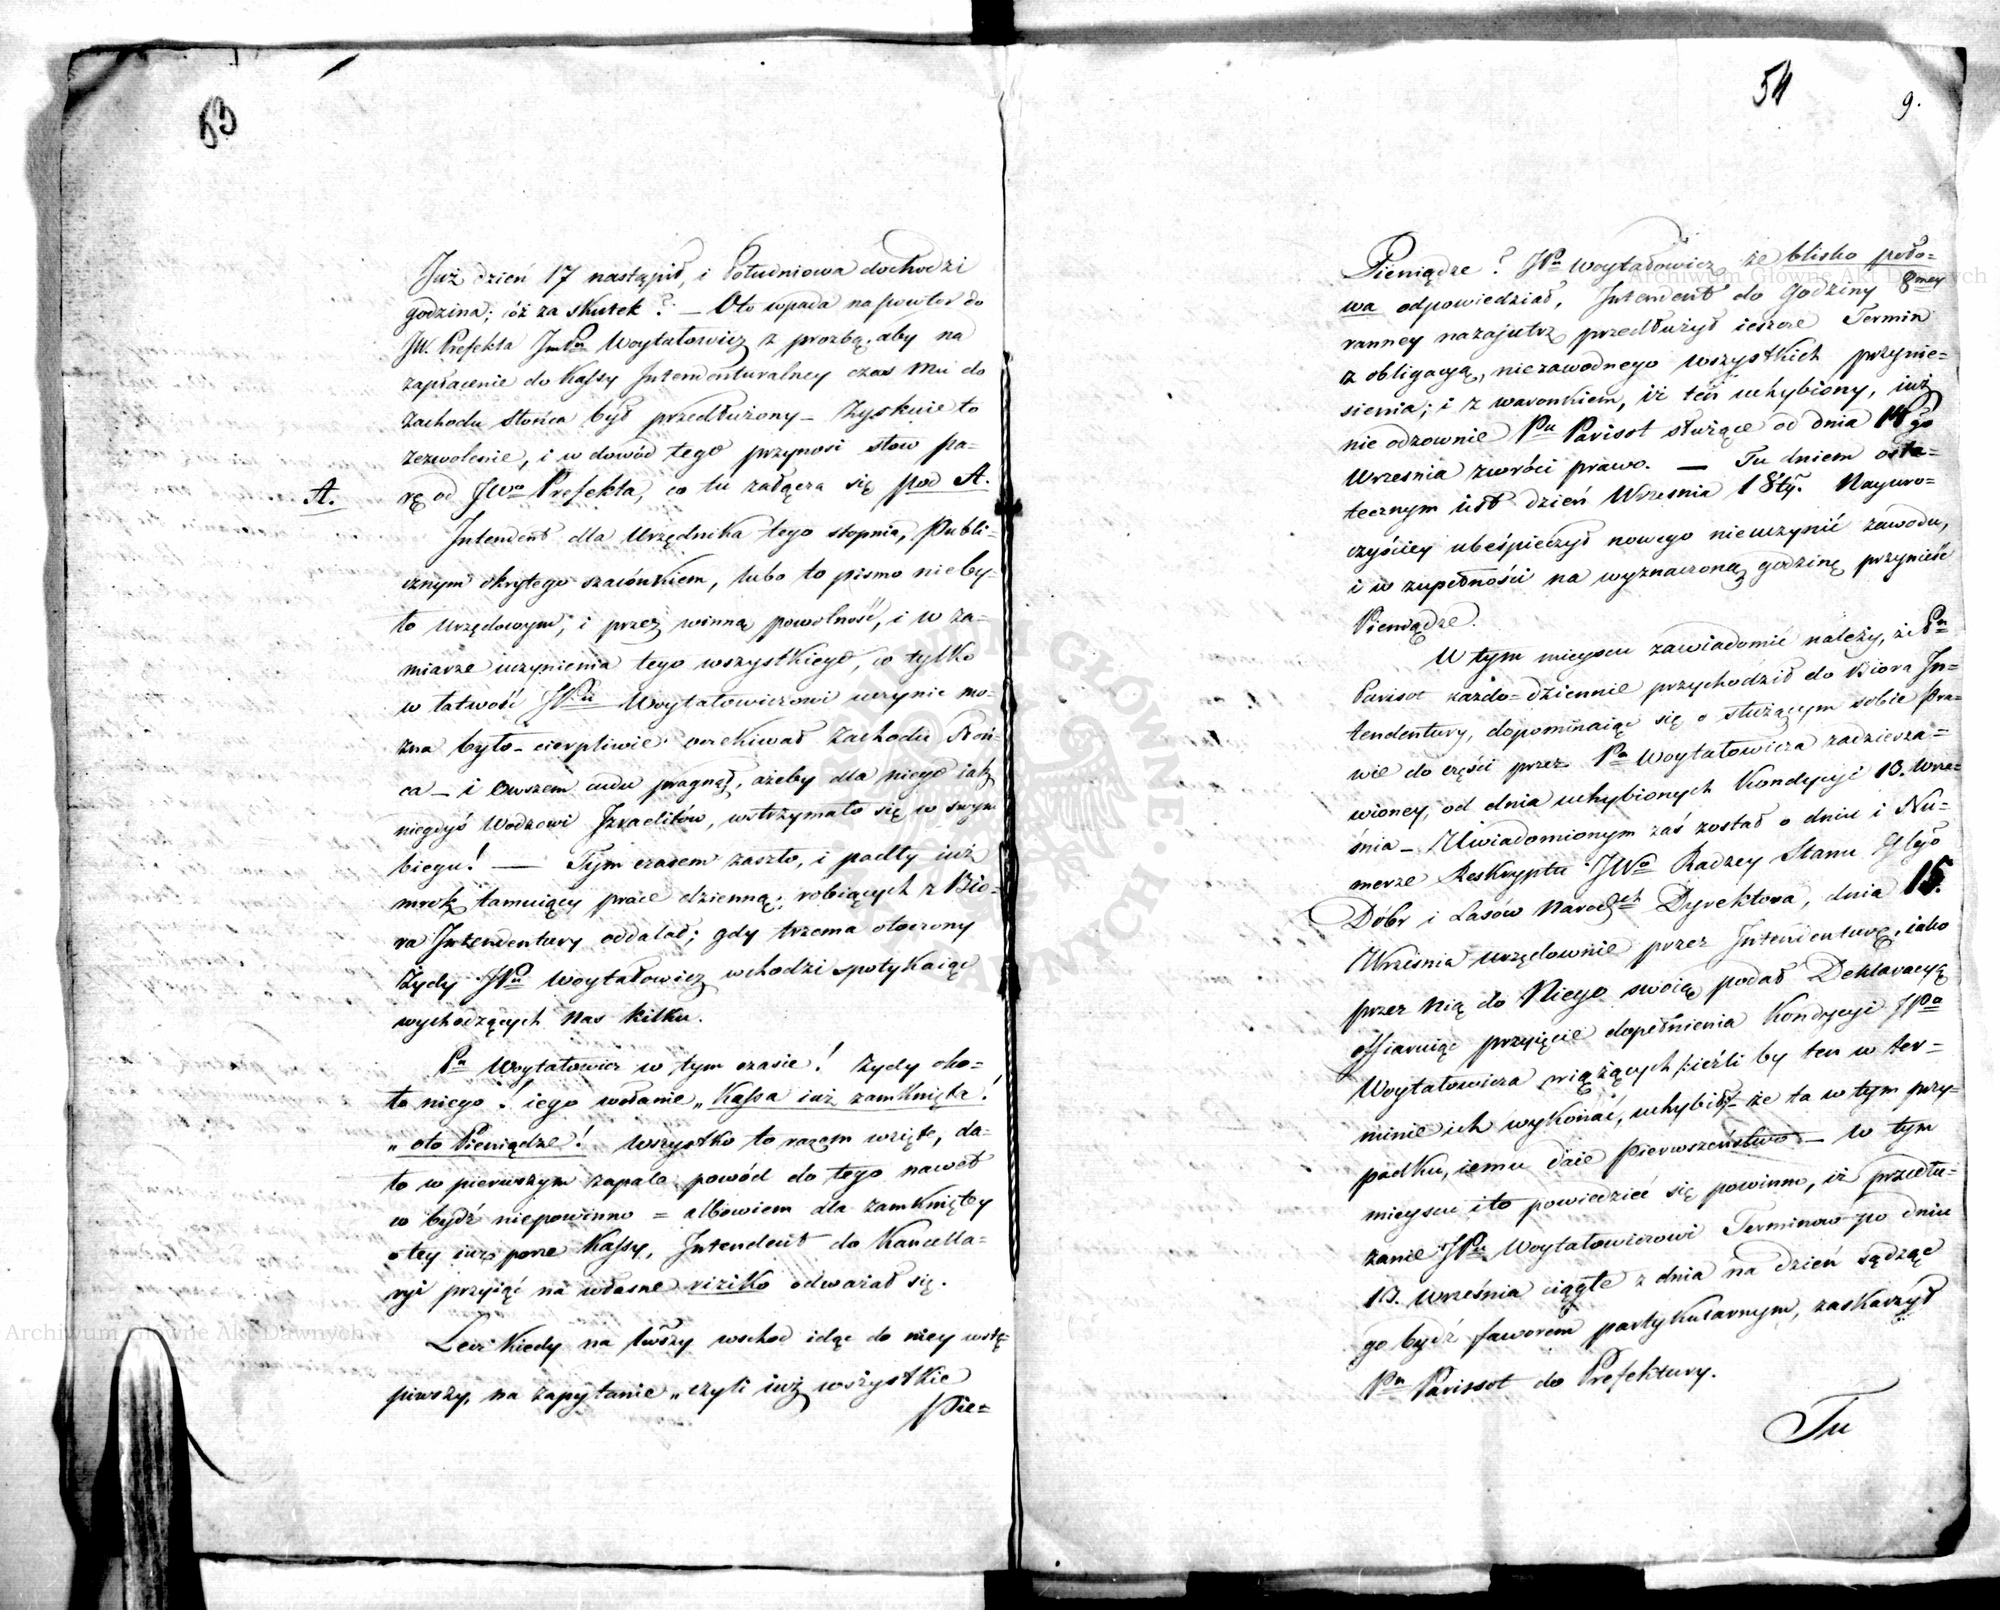 53
Już dzień 17 nastąpił, i Południowa dochodzi
godzina; cóż za skutek? — Oto wpada na powtor do
JW. Prefekta JmPn Woytałowicz z prozbą, aby na
zapłacenie do Kassy Intendenturalney czas Mu do
zachodu słońca był przedłużony — Zyskuie to
zezwolenie, i w dowód tego przynosi słow pa-
A. rę od JWo Prefekta, co tu załącza się pod A.
Intendent dla Urzędnika tego stopnia, Publi-
cznym okrytego szacónkiem, lubo to pismo nieby-
ło Urzędowym; i przez winną powolność, i w za-
miarze uczynienia tego wszystkiego, co tylko
w łatwość JPu Woytałowiczowi uczynić mo-
żna było — cierpliwie oczekiwał Zachodu Słoń-
ca — i owszem cudu pragnął, ażeby dla niego iak
niegdyś Wodzowi Izraelitów, wstrzymało się w swym
biegu! — Tym czasem zaszło, i padły iuż
mrok tamuiący prace dzienną; robiących z Bió-
ra Intendentury oddalał; gdy trzema otoczony
Żydy JPn Woytałowicz wchodzi spotykaiąc
wychodzących Nas kilku.
Pn Woytałowicz w tym czasie! Żydy oko-
ło niego! iego wołanie „Kassa iuż zamknięta!
„oto Pieniądze! wszystko to razem wzięte, da-
ło w pierwszym zapale powód do tego nawet
co bydź niepowinno = albowiem dla zamkniętey
o tey iuż porze Kassy, Intendent do Kancella-
ryi przyiąć na własne riziko odważał się.
Lecz Kiedy na wschod idąc do niey wstę-
piwszy, na zapytanie „czyli iuż wszystkie
Pie=
54
9.
Pieniądze? JPn Woytałowicz że blisko poło-
wa odpowiedział, Intendent do Godziny 8mey
ranney nazajutrz przedłużył ieszcze Termin
z obligacyą, niezawodnego wszystkich przynie-
sienia; i z warunkiem, iż ten uchybiony, iuż
nieodzownie Pu Parisot służące od dnia 14go
Września zwróci prawo. — Tu dniem osta-
tecznym iest dzień Września 18ty. Nayuro-
czyściey ubeśpieczył nowego nieuczynić zawodu,
i w zupełności na wyznaczoną godzinę przynieść
Pieniądze.
W tym mieyscu zawiadomić należy, że Pn
Parisot każdo-dziennie przychodził do Biora In-
tendentury, dopominaiąc się o służącym sobie Pra-
wie do części przez Pa Woytałowicza zadzierża-
wioney, od dnia uchybionych Kondycyi 13. Wrze-
śnia — Uwiadomionym zaś został o dniu i Nu-
merze Reskryptu JWo Radzcy Stanu Głgo
Dóbr i Lasów Narodch Dyrektora, dnia 15.
Września urzędownie przez Intendenturę, iako
przez Nią do Niego swoią podał Deklaracyą
offiaruiąc przyięcie dopełnienia Kondycyi JPa
Woytałowicza wiążących ieźli by ten w ter-
minie ich wykonać, uchybił — że ta w tym przy-
padku, iemu daie Pierwszeństwo — w tym
mieyscu i to powiedzieć się powinno, iż przedłu-
żanie JPu Woytałowiczowi Terminow po dniu
13. Września ciągłe z dnia na dzień sądząc
go bydź faworem partykularnym, zaskarżył
Pn Parissot do Prefektury.
Tu